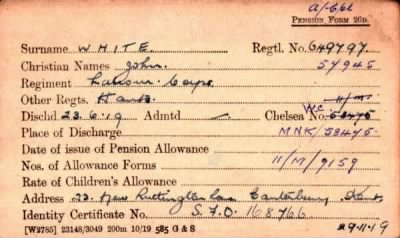 A/666
PENSION FORM 26D.
Surname WHITE. Regtl. No. 649797.
Christian Names John. 57945
Regiment Labour Corps.
Other Regts. Hants. 11/M/
Dischd 23.6.19 Admtd — Chelsea No. WC 58475
Place of Discharge MNK/58475
Date of issue of Pension Allowance
Nos. of Allowance Forms 11/M/9159
Rate of Children's Allowance
Address 22. New Ruttington Lane Canterbury Kent
Identity Certificate No. S.F.O 168766
[W2785] 23148/3049 200m 10/19 585 G & S 29.11.19